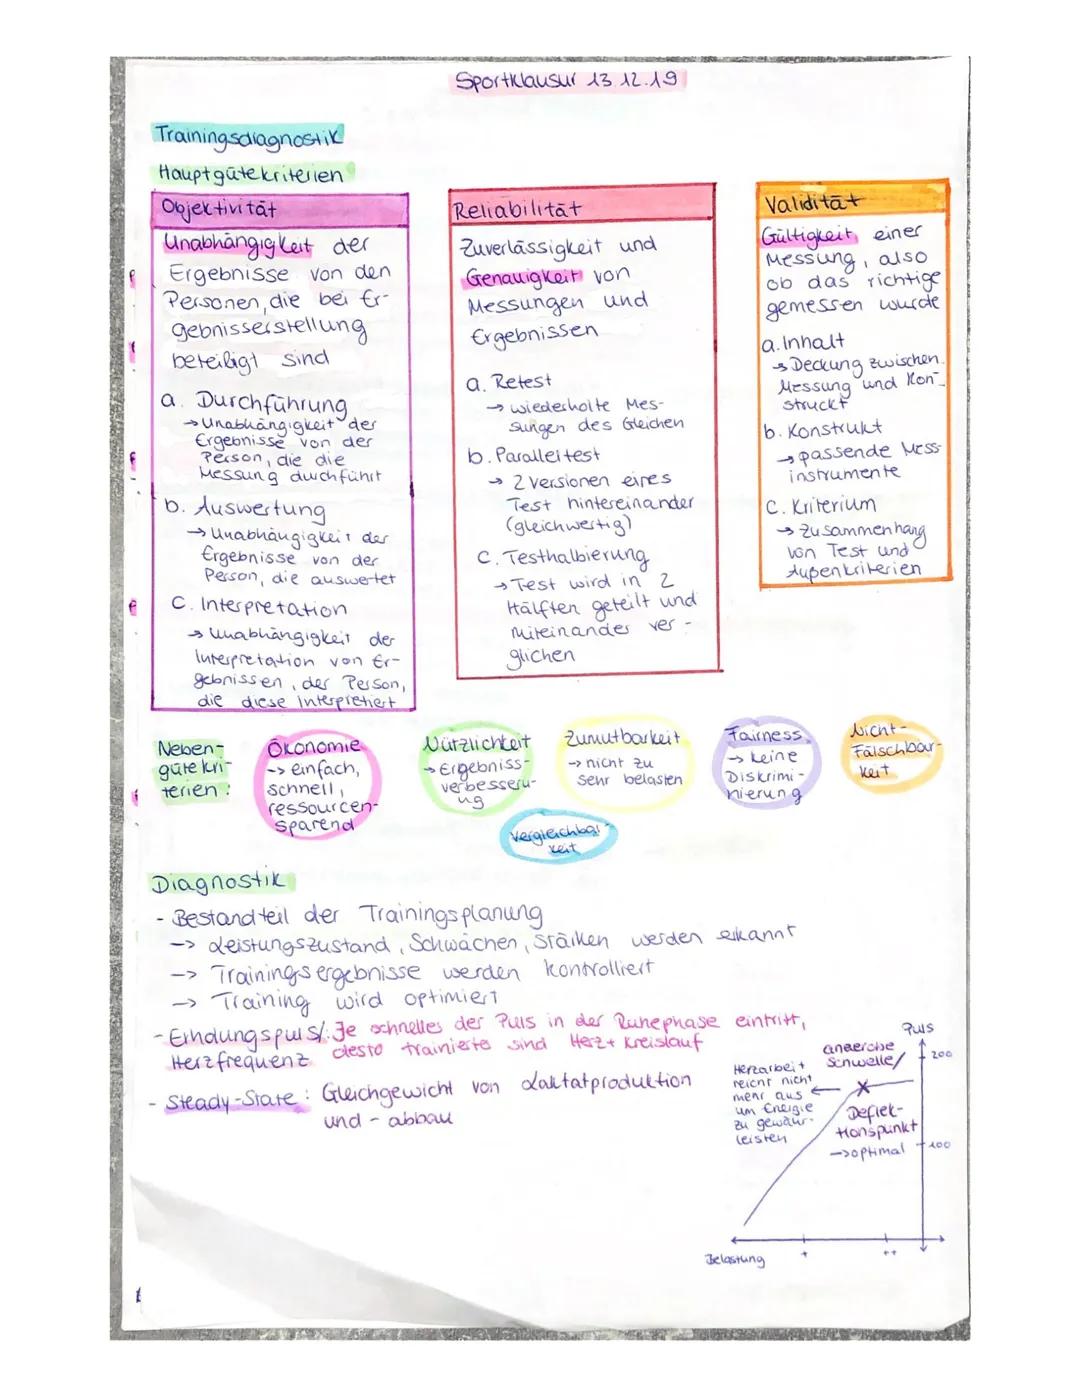 Sportklausur 13.12.19
Trainingsdiagnostik
Hauptgütekriterien
Objektivität
Unabhängigkeit der
Ergebnisse von den
Personen, die bei Er-
gebnisserstellung
beteiligt sind
a. Durchführung
→ Unabhängigkeit der
Ergebnisse von der
Person, die die
Messung durchführt
b. Auswertung
→ Unabhängigkeit der
Ergebnisse von der
Person, die auswertet
c. Interpretation
→ Unabhängigkeit der
Interpretation von Er-
gebnissen, der Person,
die diese Interpretiert
Reliabilität
Zuverlässigkeit und
Genauigkeit von
Messungen und
Ergebnissen
a. Retest
→ wiederholte Mes-
sungen des Gleichen
b. Paralleltest
→ 2 Versionen eines
Test hintereinander
(gleichwertig)
c. Testhalbierung
→ Test wird in 2
Hälften geteilt und
miteinander ver-
glichen
Validität
Gültigkeit einer
Messung, also
ob das richtige
gemessen wurde
a. Inhalt
→ Deckung zwischen
Messung und Kon-
struckt
b. Konstrukt
→ passende Mess
instrumente
c. Kriterium
→ Zusammenhang
von Test und
Außenkriterien
Neben-
gütekri-
terien:
Ökonomie
-> einfach,
schnell,
ressourcen-
sparend
Nützlichkeit
→ Ergebniss-
verbesseru-
ng
Zumutbarkeit
→ nicht zu
sehr belasten
Fairness
→ keine
Diskrimi-
nierung
Nicht-
Fälschbar-
keit
Vergleichbar-
keit
Diagnostik
- Bestandteil der Trainingsplanung
-> Leistungszustand, Schwächen, Stärken werden erkannt
-> Trainingsergebnisse werden kontrolliert
-> Training wird optimiert
- Erholungspuls/: Je schnelles der Puls in der Ruhephase eintritt,
Herzfrequenz desto trainierte sind Herz + Kreislauf
- Steady-State: Gleichgewicht von Laktatproduktion
und - abbau
Puls
200
anaerobe
Schwelle/
Herzarbeit
reicht nicht
mehr aus
um Energie
zu gewähr-
leisten
Deflek-
tionspunkt
->optimal
100
Belastung
+
++